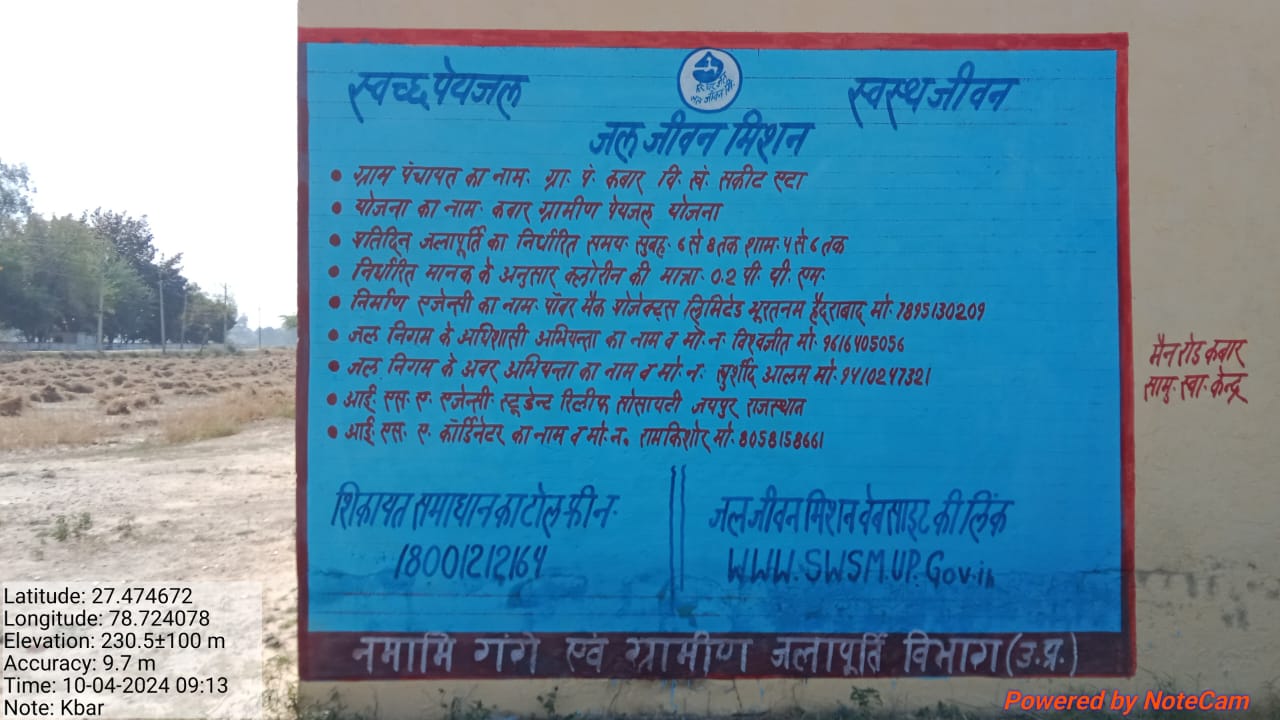 स्वच्छ पेयजल
स्वस्थ जीवन
जल जीवन मिशन
• ग्राम पंचायत का नाम: ग्रा. पं. कबार वि. खं. सकीट एटा
• योजना का नाम: कबार ग्रामीण पेयजल योजना
• प्रतिदिन जलापूर्ति का निर्धारित समय: सुबह: 6 से 8 तक शाम: 4 से 6 तक
• निर्धारित मानक के अनुसार क्लोरीन की मात्रा: 0.2 पी. पी. एम.
• निर्माण एजेन्सी का नाम: पॉवर मैक प्रोजेक्ट्स लिमिटेड भूरतनम हैदराबाद मो. 7895130209
• जल निगम के अधिशासी अभियन्ता का नाम व मो. न. विश्वजीत मो. 9616405056
• जल निगम के अवर अभियन्ता का नाम व मो. न. खुर्शीद आलम मो. 9410247321
• आई. एस. ए. एजेन्सी: स्टूडेन्ट रिलीफ सोसायटी जयपुर राजस्थान
• आई. एस. ए. कॉर्डिनेटर का नाम व मो. न. रामकिशोर मो. 8058158661
शिकायत समाधान का टोल-फ्री न.
18001212164
जल जीवन मिशन वेबसाइट की लिंक
WWW.SWSM.UP.Gov.in
नमामि गंगे एवं ग्रामीण जलापूर्ति विभाग (उ.प्र.)
मैन रोड कबार
सामु. स्वा. केन्द्र
Latitude: 27.474672
Longitude: 78.724078
Elevation: 230.5±100 m
Accuracy: 9.7 m
Time: 10-04-2024 09:13
Note: Kbar
Powered by NoteCam